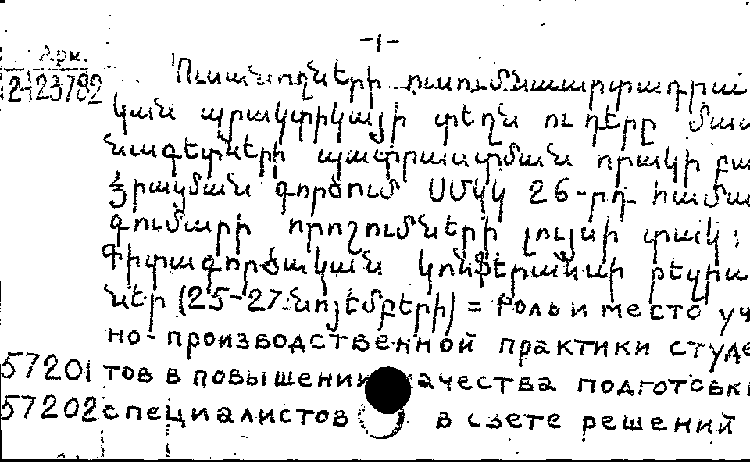 -1-
Арм.
2-23782 Ուսանողների ուսումնաարտադրա
կան պրակտիկայի տեղն ու դերը մաս
նագետների պատրաստման որակի բա
ձրացման գործում ՍՄԿԿ 26-րդ համա
գումարի որոշումների լույսի տակ:
Գիտագործնական կոնֆերանսի թեզիս
ներ (25-27 նոյեմբերի) = Роль и место уч
но-производственной практики студе
57201 тов в повышении качества подготовки
57202 специалистов в свете решений